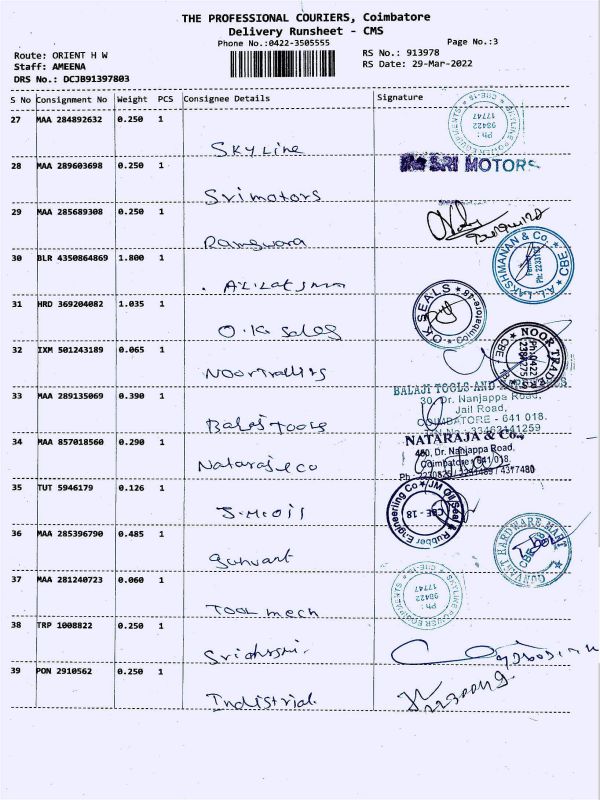 THE PROFESSIONAL COURIERS, Coimbatore
Delivery Runsheet - CMS
Phone No.:0422-3505555
Page No.:3
Route: ORIENT H W
RS No.: 913978
Staff: AMEENA
RS Date: 29-Mar-2022
DRS No.: DCJB91397803
S No Consignment No Weight PCS Consignee Details Signature
27 MAA 284892632 0.250 1
Skyline
28 MAA 289603698 0.250 1
SRI MOTORS
Srimotors
29 MAA 285689308 0.250 1
30 BLR 4350864869 1.800 1
A.L.LAKSHMANAN & Co. CBE
31 HRD 369204082 1.035 1
O K SEALS Coimbatore-18
O.K sales
32 IXM 501243189 0.065 1
NOOR TRADERS CBE
Ph:0422
33 MAA 289135069 0.390 1
BALAJI TOOLS AND
30, Dr. Nanjappa Road,
Jail Road,
COIMBATORE - 641 018.
Balaji Tools
34 MAA 857018560 0.290 1
NATARAJA & Co.,
480, Dr. Nanjappa Road,
Coimbatore - 641 018.
Nataraj & co
35 TUT 5946179 0.126 1
JM Oil Seal & Rubber Engineering Co
CBE - 18
J.M.oil
36 MAA 285396790 0.485 1
GUNVANT HARDWARE MART
CBE
Gunvant
37 MAA 281240723 0.060 1
SKYLINE POWER EQUIPMENTS CBE-18
Ph :
98422
17747
Tool mech
38 TRP 1008822 0.250 1
39 PON 2910562 0.250 1
Industrial.